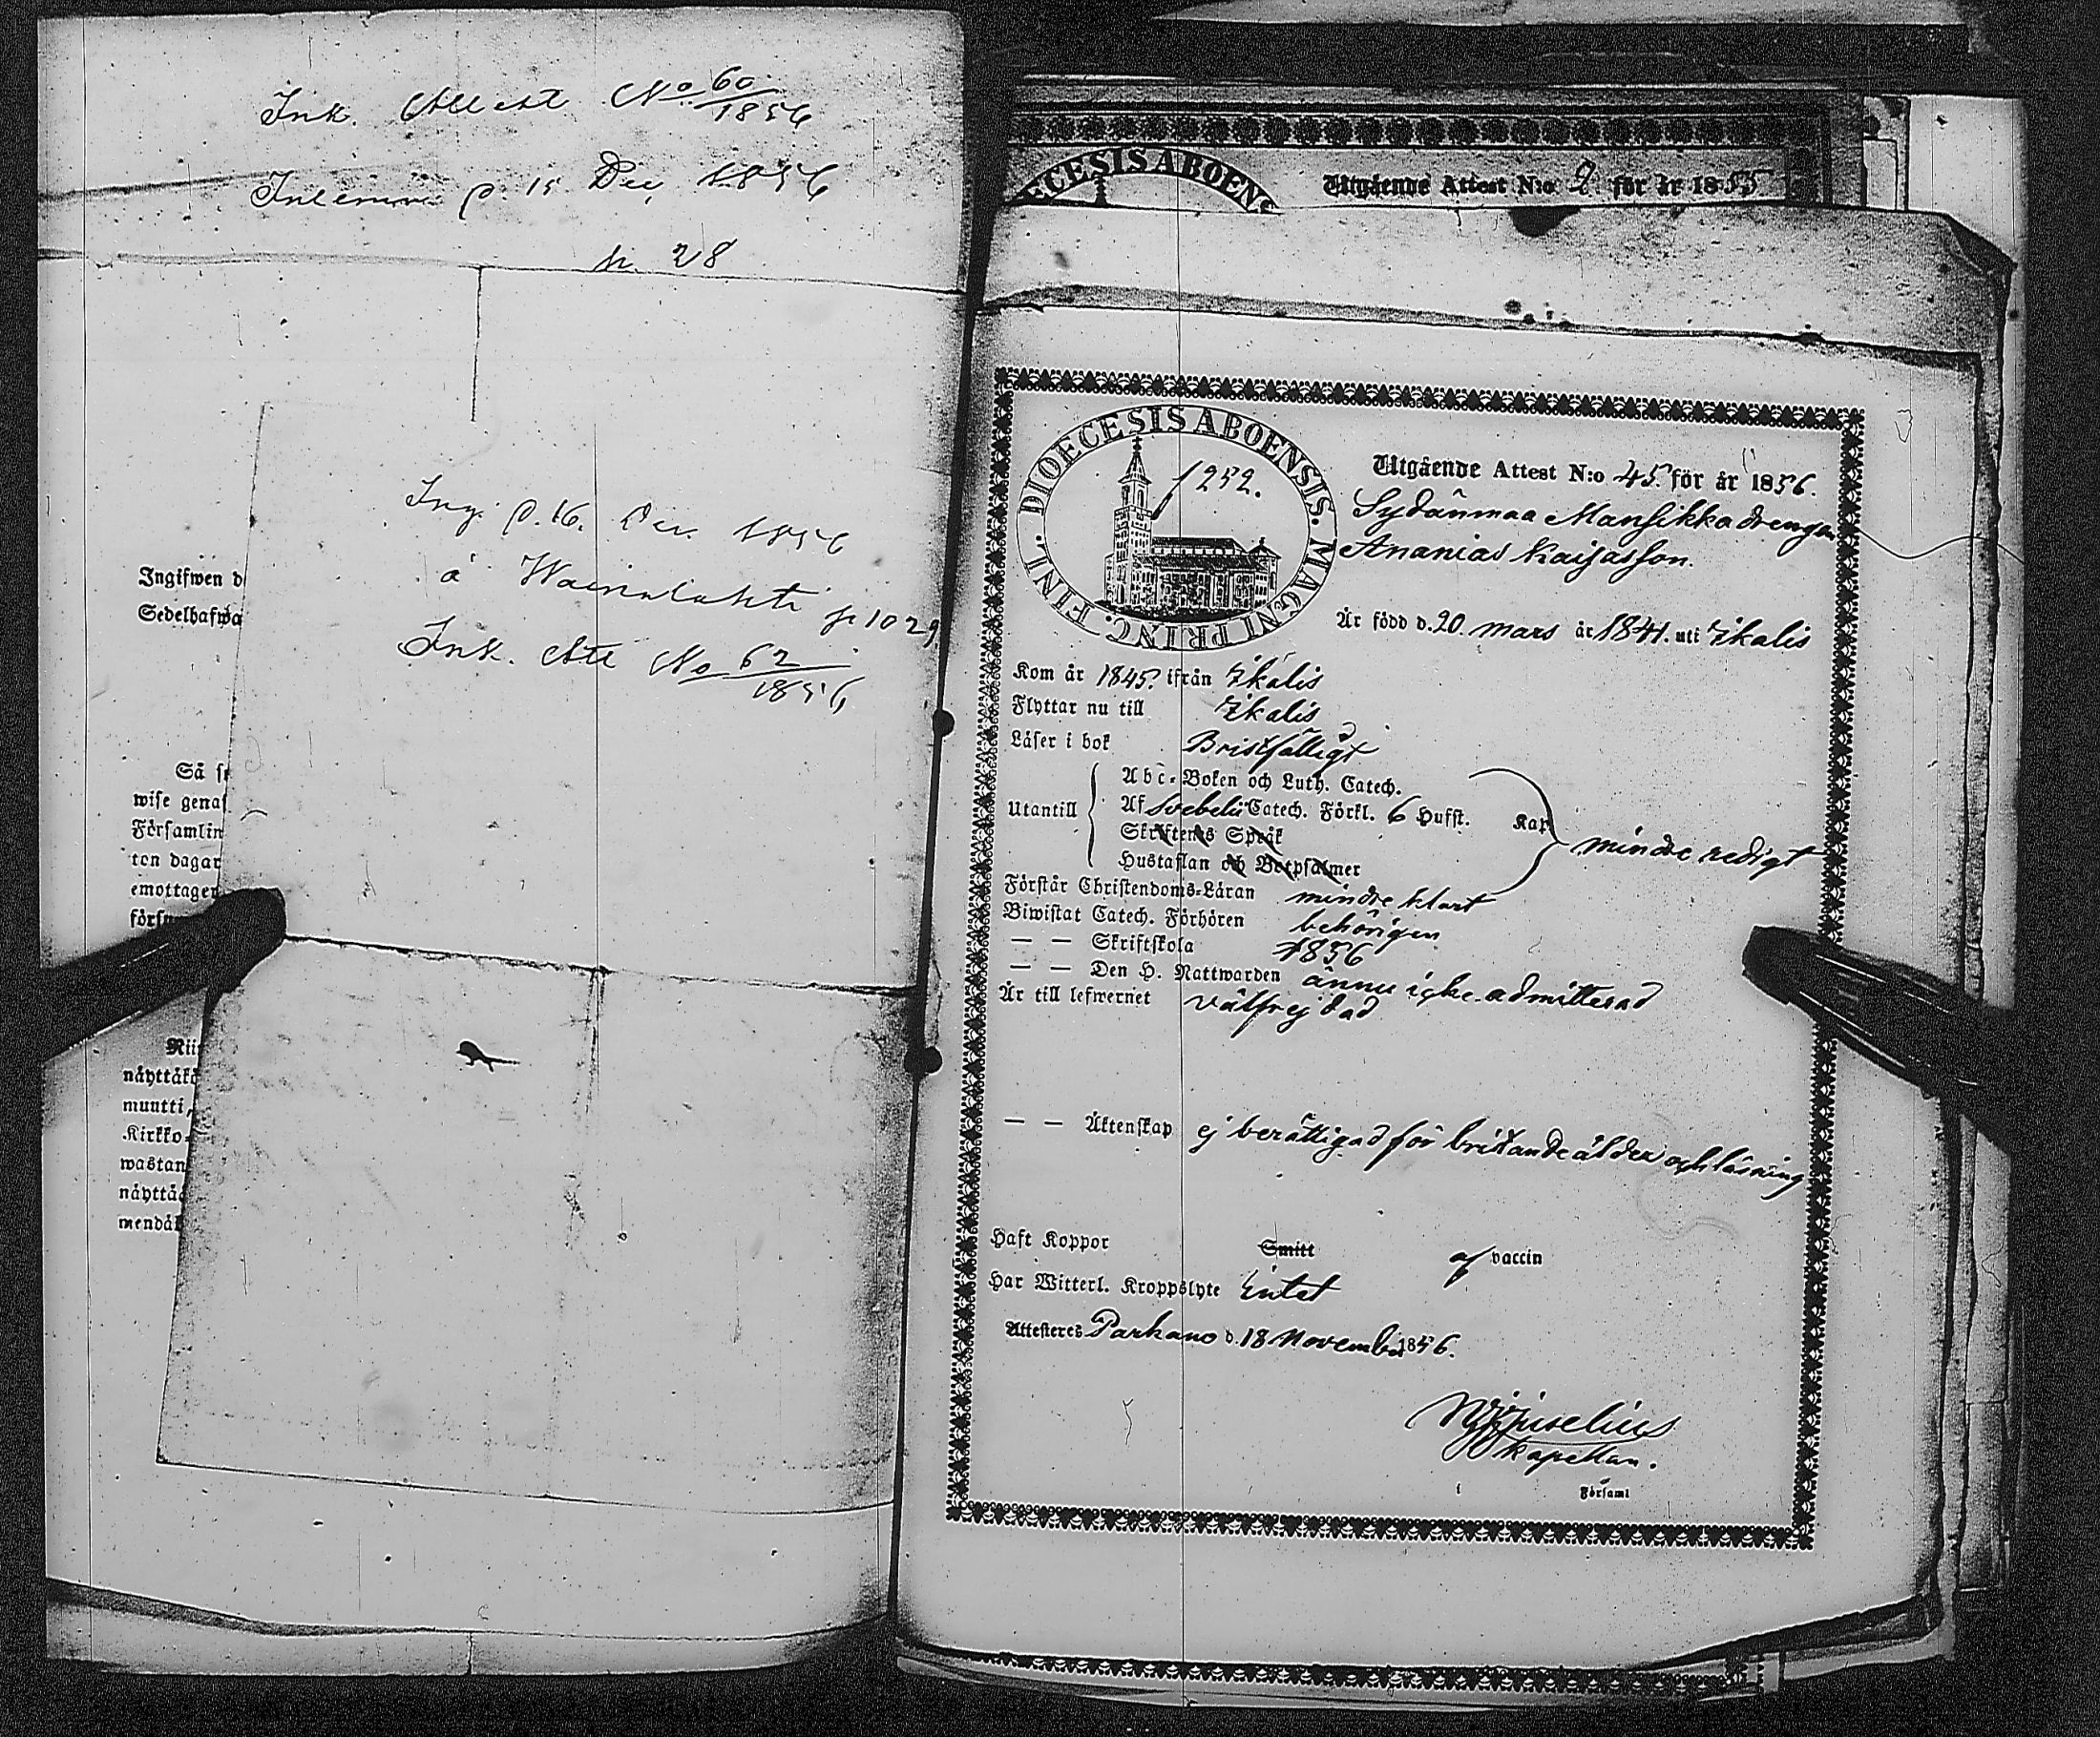 Ink. Attest No 60/1856
Inlemn. d. 15 Dec 1856
p. 28
Ingifwen d
Sedelhafwa
Ing. d. 16. Dec. 1856
å Wainalahti p 1029
Ink. Att No 62/1856
Så
wise genas
Församlin
ten dagar
emottager
näyttäkö
muutti,
Kirkko-
wastan
näyttä
mendä
ECESIS ABOENS
Utgående Attest N:o 2 för år 1855
DIOECESIS ABOENSIS. MAGNI PRINC. FINL.
1252.
Utgående Attest N:o 45. för år 1856.
Sydänmaa Mansikka drengen
Ananias Kaisasson.
Är född d. 20. mars år 1841. uti Ikalis
Kom år 1845. ifrån Ikalis
Flyttar nu till Ikalis
Läser i bok Bristfälligt
Utantill
Abc-Boken och Luth. Catech.
Af Svebelii Catech. Förkl. 6 Hufst. Kap
Skriftenes Språk
Hustaflan och Botpsalmer
mindre redigt
Förstår Christendoms-Läran mindre klart
Biwistat Catech. Förhören behörigen
— — Skriftskola 1856
— — Den H. Nattwarden ännu icke admitterad
Är till lefwernet välfrejdad
— — Äktenskap ej berättigad för bristande ålder och läsning
Haft Koppor Smitt af vaccin
Har Witterl. Kroppslyte Intet
Attesteres Parkano d. 18 November 1856.
Kapellan.
i Församl